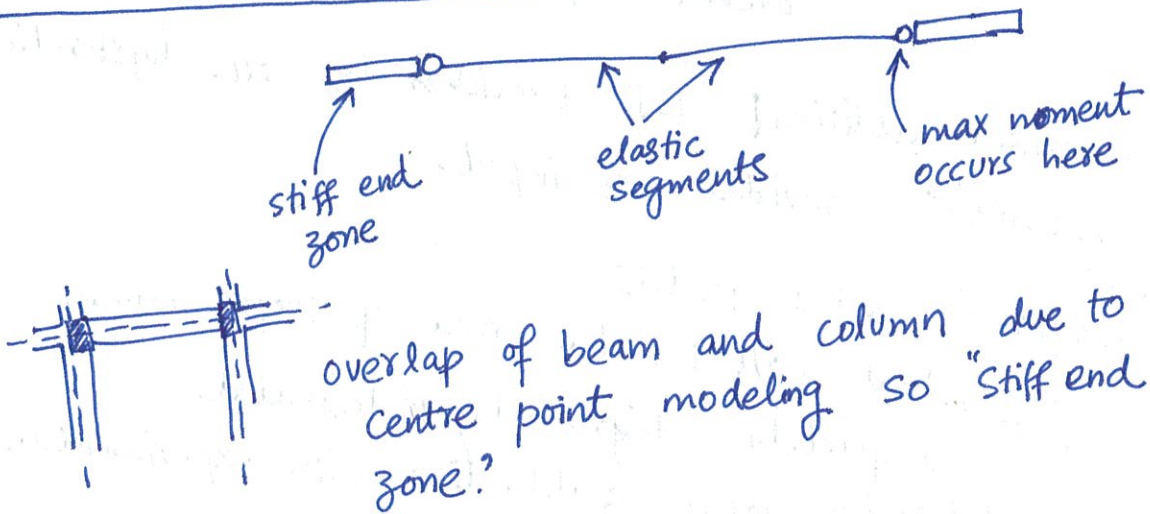 stiff end
zone
elastic
segments
max moment
occurs here
overlap of beam and column due to
centre point modeling so "stiff end
zone?